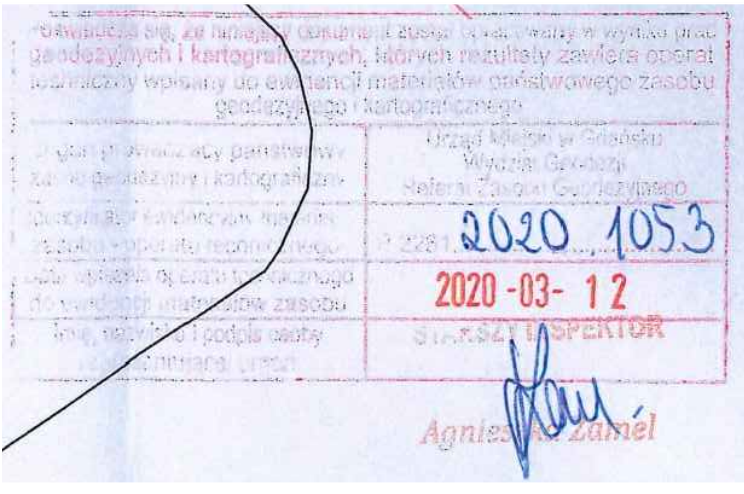 Poświadcza się, że niniejszy dokument został opracowany w wyniku prac
geodezyjnych i kartograficznych, których rezultaty zawiera operat
techniczny wpisany do ewidencji materiałów państwowego zasobu
geodezyjnego i kartograficznego
Organ prowadzący państwowy
zasób geodezyjny i kartograficzny
Urząd Miejski w Gdańsku
Wydział Geodezji
Referat Zasobu Geodezyjnego
Identyfikator ewidencyjny materiału
zasobu - operatu technicznego
P.2261.2020.1053
Data wpisania operatu technicznego
do ewidencji materiałów zasobu
2020 -03- 12
Imię, nazwisko i podpis osoby
reprezentującej organ
STARSZY INSPEKTOR
Agnieszka Zamel